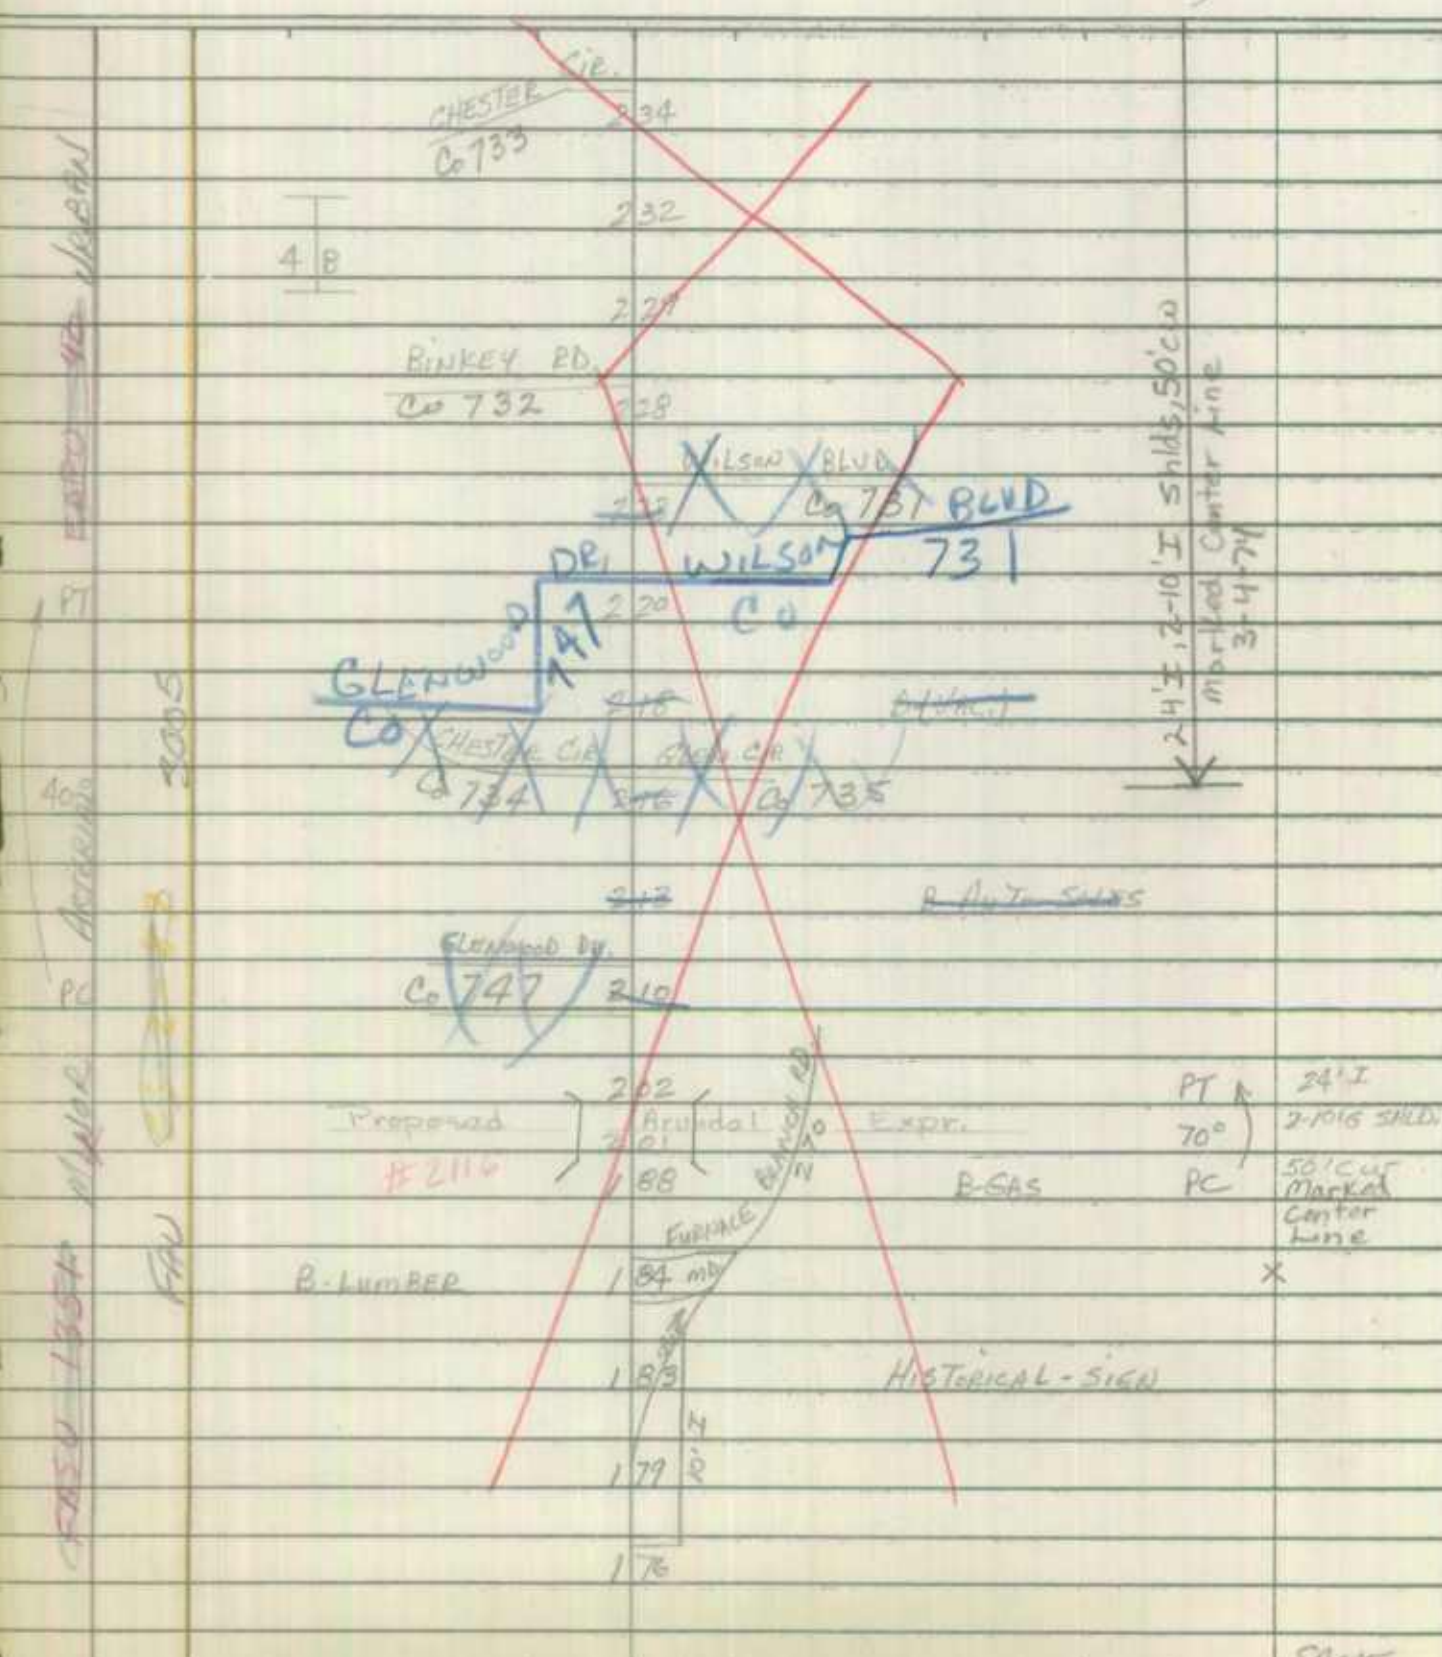 Cir.
CHESTER
Co 733
2 34
2 32
4 8
2 29
BINKEY RD.
Co 732
2 28
WILSON BLVD
Co 731
BLVD
731
DR. WILSON
Co
2 20
GLENWOOD
747
Co
2 18
CHESTER CIR
GLEN CIR
Co 734
2 16
Co 735
2 12
B-AUTO SALES
GLENWOOD DR.
Co 747
2 10
2 02
Proposed Arundel Expr.
2 01
#2116
1 88
B-GAS
FURNACE BRANCH RD
N 70
B-LUMBER
1 84 MD
1 83
HISTORICAL-SIGN
1 79
10' I
1 76
24' I, 2-10' I Shlds, 50' cw
Marked Center Line
3-4-74
PT
70°
PC
24' I
2-10'G SHLD.
50' cut
Marked
Center
Line
X
URBAN
PT
40°
PC
MINOR ARTERIAL
3005
FAU